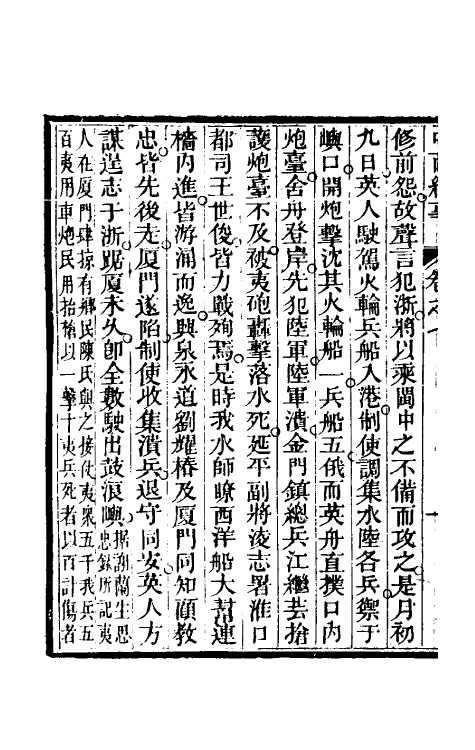 修前怨故聲言犯浙將以乘閩中之不備而攻之是月初
九日英人駛駕火輪兵船入港制使調集水陸各兵禦于
嶼口開炮擊沈其火輪船一兵船五俄而英舟直撲口內
炮臺舍舟登岸先犯陸軍陸軍潰金門鎮總兵江繼芸搶
護炮臺不及被夷砲轟擊落水死延平副將淩志署淮口
都司王世俊皆力戰殉焉是時我水師瞭西洋船大幫連
檣內進皆游涌而逸興泉永道劉耀椿及厦門同知顧教
忠皆先後去厦門遂陷制使收集潰兵退守同安英人方
謀逞志于浙踞厦未久卽全數駛出鼓浪嶼據謝蘭生思
忠錄所記夷
人在厦門肆掠有鄉民陳氏與之接仗夷衆五千我兵五
百夷用車炮民用抬槍以一擊十夷兵死者以百計傷者